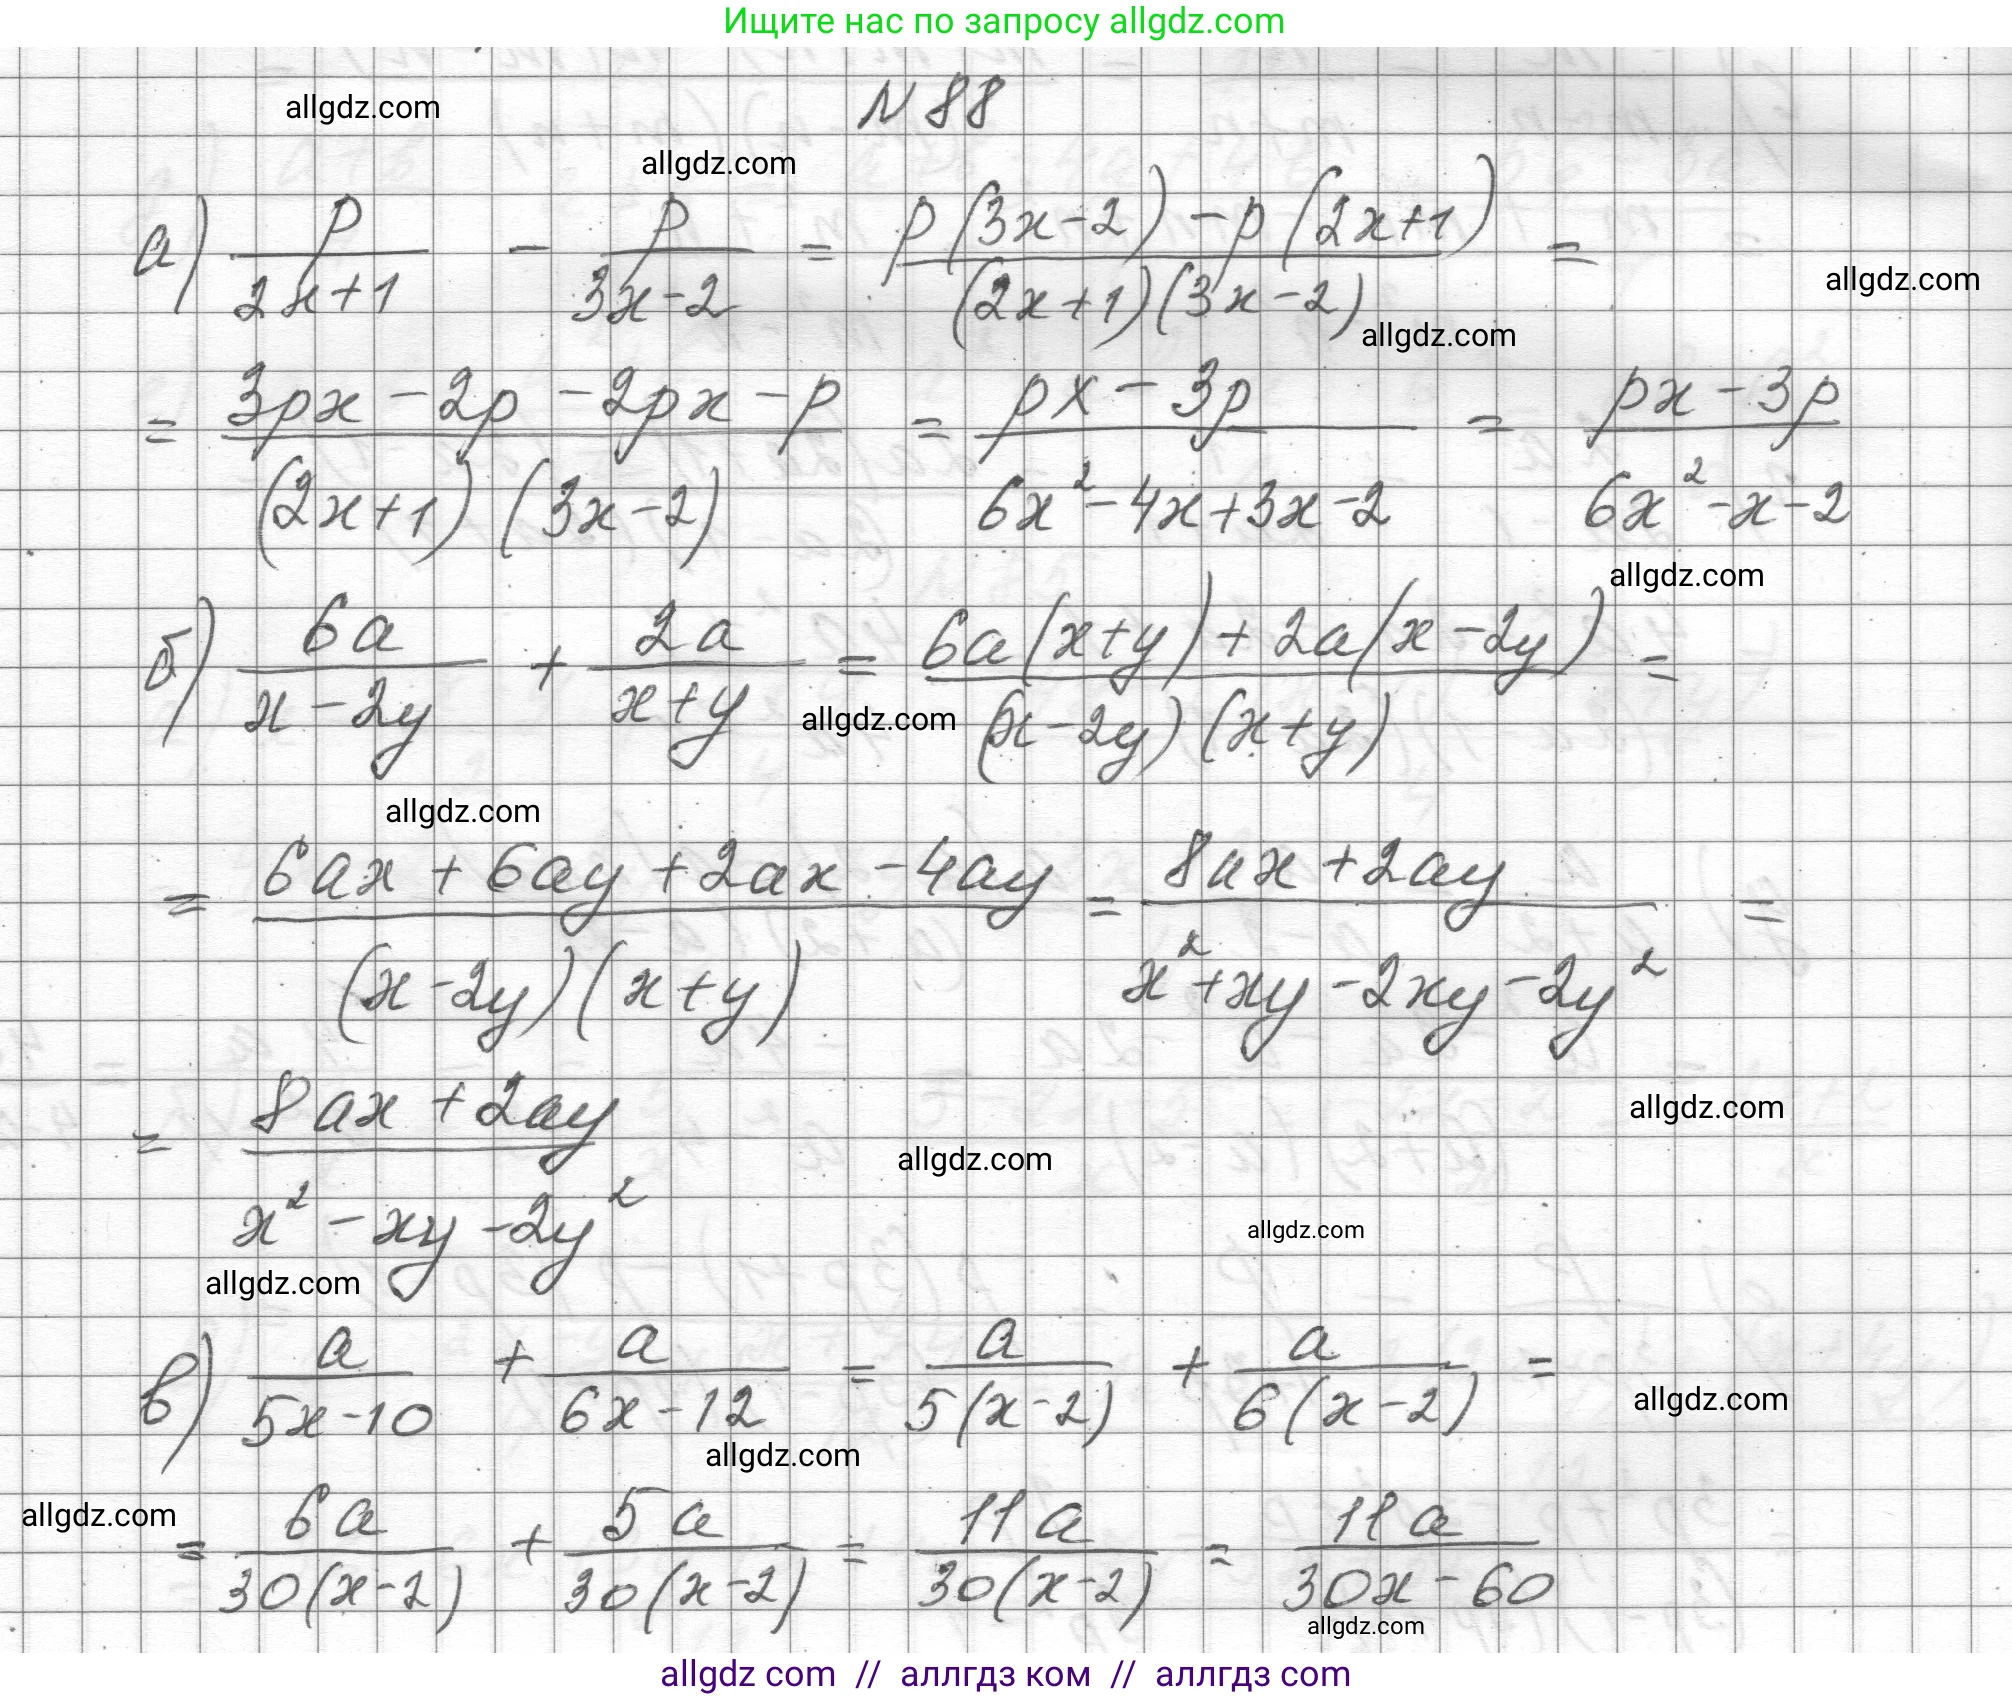 Ищите нас по запросу allgdz.com
N 88
allgdz.com
allgdz.com
а) p/(2x+1) - p/(3x-2) = (p(3x-2)-p(2x+1))/((2x+1)(3x-2)) =
allgdz.com
allgdz.com
= (3px-2p-2px-p)/((2x+1)(3x-2)) = (px-3p)/(6x²-4x+3x-2) = (px-3p)/(6x²-x-2)
allgdz.com
б) 6a/(x-2y) + 2a/(x+y) = (6a(x+y)+2a(x-2y))/((x-2y)(x+y)) =
allgdz.com
allgdz.com
= (6ax+6ay+2ax-4ay)/((x-2y)(x+y)) = (8ax+2ay)/(x²+xy-2xy-2y²) =
= (8ax+2ay)/(x²-xy-2y²)
allgdz.com
allgdz.com
allgdz.com
allgdz.com
в) a/(5x-10) + a/(6x-12) = a/(5(x-2)) + a/(6(x-2)) =
allgdz.com
allgdz.com
allgdz.com
= 6a/(30(x-2)) + 5a/(30(x-2)) = 11a/(30(x-2)) = 11a/(30x-60)
allgdz.com
allgdz com // аллгдз ком // аллгдз com